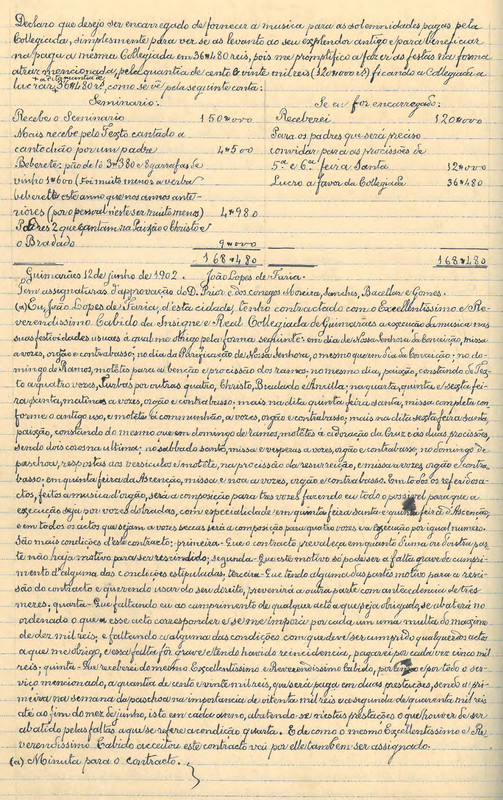 Declaro que desejo ser encarregado de fornecer a musica para as solemnidades pagas pela
Collegiada, simplesmente para ver se as levanto ao seu esplendor antigo e para beneficiar
na paga a mesma Collegiada em 36#480 reis, pois me promptifico a fazer as festas na forma
atraz mencionada, pela quantia de cento e vinte mil reis (120#000 rs) ficando a Collegiada a
lucrar a quantia de 36#480 rs, como se vê pela seguinte conta:
Seminario: Se eu fôr encarregado:
Recebe o Seminario 150#000 Receberei 120#000
Mais recebe pelo Texto cantado a Para os padres que será preciso
cantochão por um padre 4#500 convidar para as procissões de
Beberete: pão de ló 3#380 e 8 garrafas de 5ª e 6ª feira Santa 12#000
vinho 1#600 (Foi muito menor a verba Lucro a favor da Collegiada 36#480
beberete este anno que nos annos ante-
riores (por o pessoal n'este ser muito menos) 4#980
Padres 2 que cantam na Paixão o Christo e
o Bradado 9#000
168#480 168#480
Guimarães 12 de junho de 1902. João Lopes de Faria.
Tem assignaturas d'approvação do D. Prior e dos conegos Moreira, Sanches, Bacellar e Gomes.
(a) Eu, João Lopes de Faria, d'esta cidade, tenho contractado com o Excellentissimo e Re-
verendissimo Cabido da Insigne e Real Collegiada de Guimarães a execução da musica nas
suas festividades usuaes á qual me obrigo pela forma seguinte: em dia de Nossa Senhora da Conceição, missa
a vozes, orgão e contrabasso; no dia da Purificação de Nossa Senhora, o mesmo que em dia da Conceição; no do-
mingo de Ramos, motetes para a benção e procissão dos ramos; no mesmo dia, paixão, constando de Tex-
to a quatro vozes, Turbas por outras quatro, Christo, Bradado e Ancilla; na quarta, quinta e sexta fei-
ra santa, matinas a vozes, orgão e contrabasso; mais na dita quinta feira santa, missa completa con-
forme o antigo uso, e motete á communhão, a vozes, orgão e contrabasso; mais na dita sexta feira santa,
paixão, constando do mesmo que em domingo de ramos, motetes á adoração da Cruz e ás duas procissões,
sendo dois coros na ultima; no sabbado santo, missa e vesperas a vozes, orgão e contrabasso; no domingo de
paschoa, respostas aos versiculos e motete, na procissão da resurreição, e missa a vozes orgão e contra-
basso; em quinta feira da Ascenção, missa e noa a vozes, orgão e contrabasso. Em todos os referidos a-
ctos, feito a musica d'orgão, será a composição para tres vozes fazendo eu todo o possivel para que a
execução seja por vozes dobradas, com especialidade em quinta feira santa e quinta feira d'Ascenção,
e em todos os actos que sejam a vozes seccas será a composição para quatro vozes e a execução por igual numero.
São mais condições d'este contracto: primeira- Que o contracto prevaleça em quanto d'uma ou d'outra par-
te não haja motivo para ser rescindido; segunda- Que este motivo só pode ser a falta grave de cumpri-
mento d'alguma das condições estipuladas; terceira- Que tendo alguma das partes motivo para a resci-
são do contracto e querendo usar do seu direito, prevenirá a outra parte com antecedencia de tres
mezes; quarta- Que faltando eu ao cumprimento de qualquer acto a que seja obrigado, se abaterá no
ordenado o que a esse acto corresponder e se me imporá por cada um uma multa do maximo
de dez mil reis, e faltando a alguma das condições com que deve ser cumprido qualquer dos actos
a que me obrigo, e essa falta fôr grave e tendo havido reincidencia, pagarei por cada vez cinco mil
reis; quinta- Que receberei do mesmo Excellentissimo e Reverendissimo Cabido, por tudo e por todo o ser-
viço mencionado, a quantia de cento e vinte mil reis, que será paga em duas prestações, sendo a pri-
meira na semana da paschoa na importancia de oitenta mil reis e a segunda de quarenta mil reis
até ao fim do mez de junho, isto em cada anno, abatendo-se n'estas prestações o que houver de ser
abatido pelas faltas a que se refere a condição quarta. E de como o mesmo Excellentissimo e Re-
verendissimo Cabido acceitou este contracto vai por elle tambem ser assignado.
(a) Minuta para o contracto.